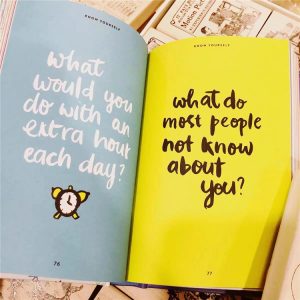 KNOW YOURSELF
what
would you
do with an
extra hour
each day?
76
KNOW YOURSELF
what do
most people
not know
about
you?
77